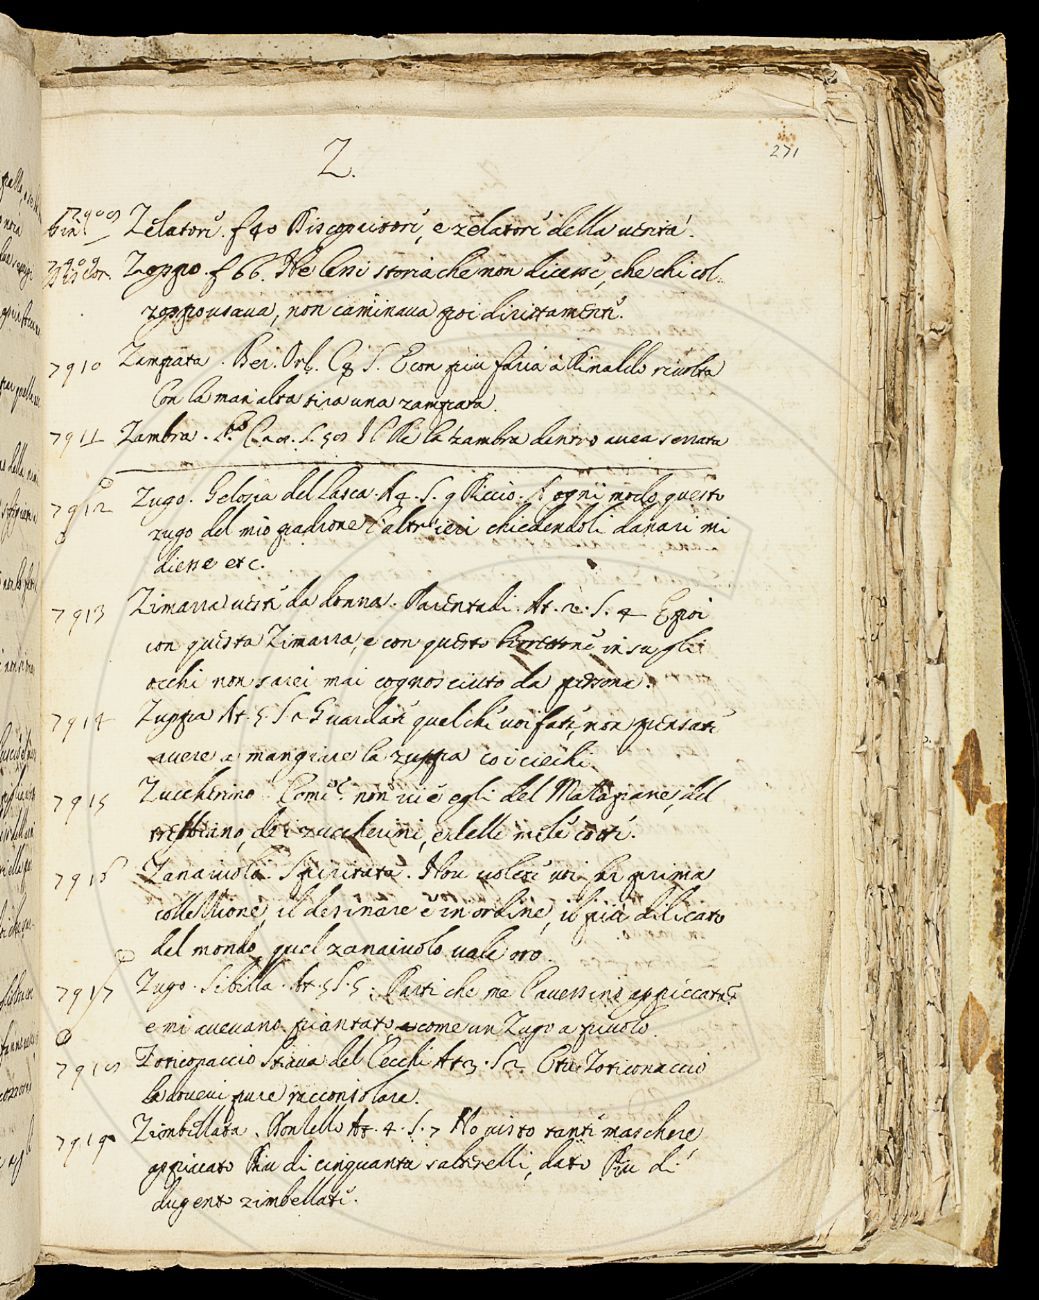 271
Z.
7908 Zelatori. f 40 Riscquitori, e zelatori della verità.
7909 Zoppo. f 66. Ne lessi storia che non dicesse, che chi col
zoppo usava, non caminava poi dirittamente.
7910 Zampata. Ber. Orl. C. 8 S. E con più furia à Rinaldo rivolta
Con la man alta tira una zampata.
7911 Zambra. Il Re la zambra dentro avea serrata
7912 Zugo. Gelosia del Lasca. At 4. S. 9 Riccio. ogni modo questo
zugo del mio padrone l'altr'ieri chiedendoli danari mi
disse etc.
7913 Zimarra veste da donna. Parentadi. At. 2. S. 4 E poi
con questa Zimarra, e con questo in su gli
occhi non sarei mai cognosciuto da persona.
7914 Zuppa At. 5. S Guardate quel che voi fate, non pensate
avere a mangiare la zuppa co i ciechi.
7915 Zuccherino. non vi è egli del Marzapane, del
trebbiano, de i zuccherini, e delle mele cotte.
7916 Zanaiuolo. Spiritata. Non volete voi far prima
collezione, il desinare è in ordine, il più dilicato
del mondo, quel zanaiuolo vale oro.
7917 Zugo. Sibilla. At. 5 S. 5. Parti che me l'avessino appiccata?
e mi avevano piantato come un Zugo a piuolo.
7918 Zoticonaccio Stiava del Cecchi At 3. S 2 Zoticonaccio
la dovevi pure racconsolare.
7919 Zimbellata. Donzello At. 4. S. 7 Ho visto tante maschere
appiccato Piu di cinquanta saltirelli, dato Piu di
dugento zimbellate.